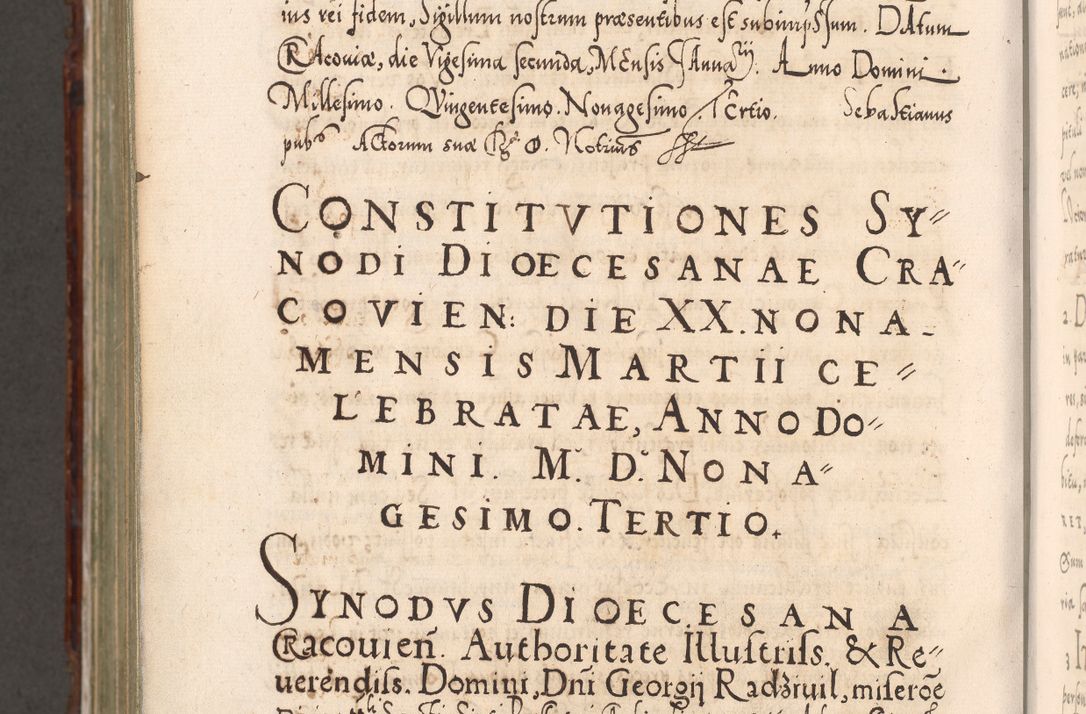 ius rei fidem, Sigillum nostrum præsentibus est subimpssum. DAtum
CRAcouiæ, die Vigesima secunda, MEnsis IAnuarij. Anno Domini.
Millesimo. QVingentesimo. Nonagesimo TErtio. Sebastianus
pubs ACtorum suæ Notrius
CONSTITVTIONES SY〃
NODI DIOECESANAE CRA〃
COVIEN: DIE XX.NONA-
MENSIS MARTII CE〃
LEBRATAE, ANNO DO〃
MINI. M. D. NONA〃
GESIMO. TERTIO.
SYNODVS DIOECESANA
CRacouieñ. Authoritate Illustriss. & Re〃
uerendiss. Domini, Dñi Georgij Radziuil, miseroe